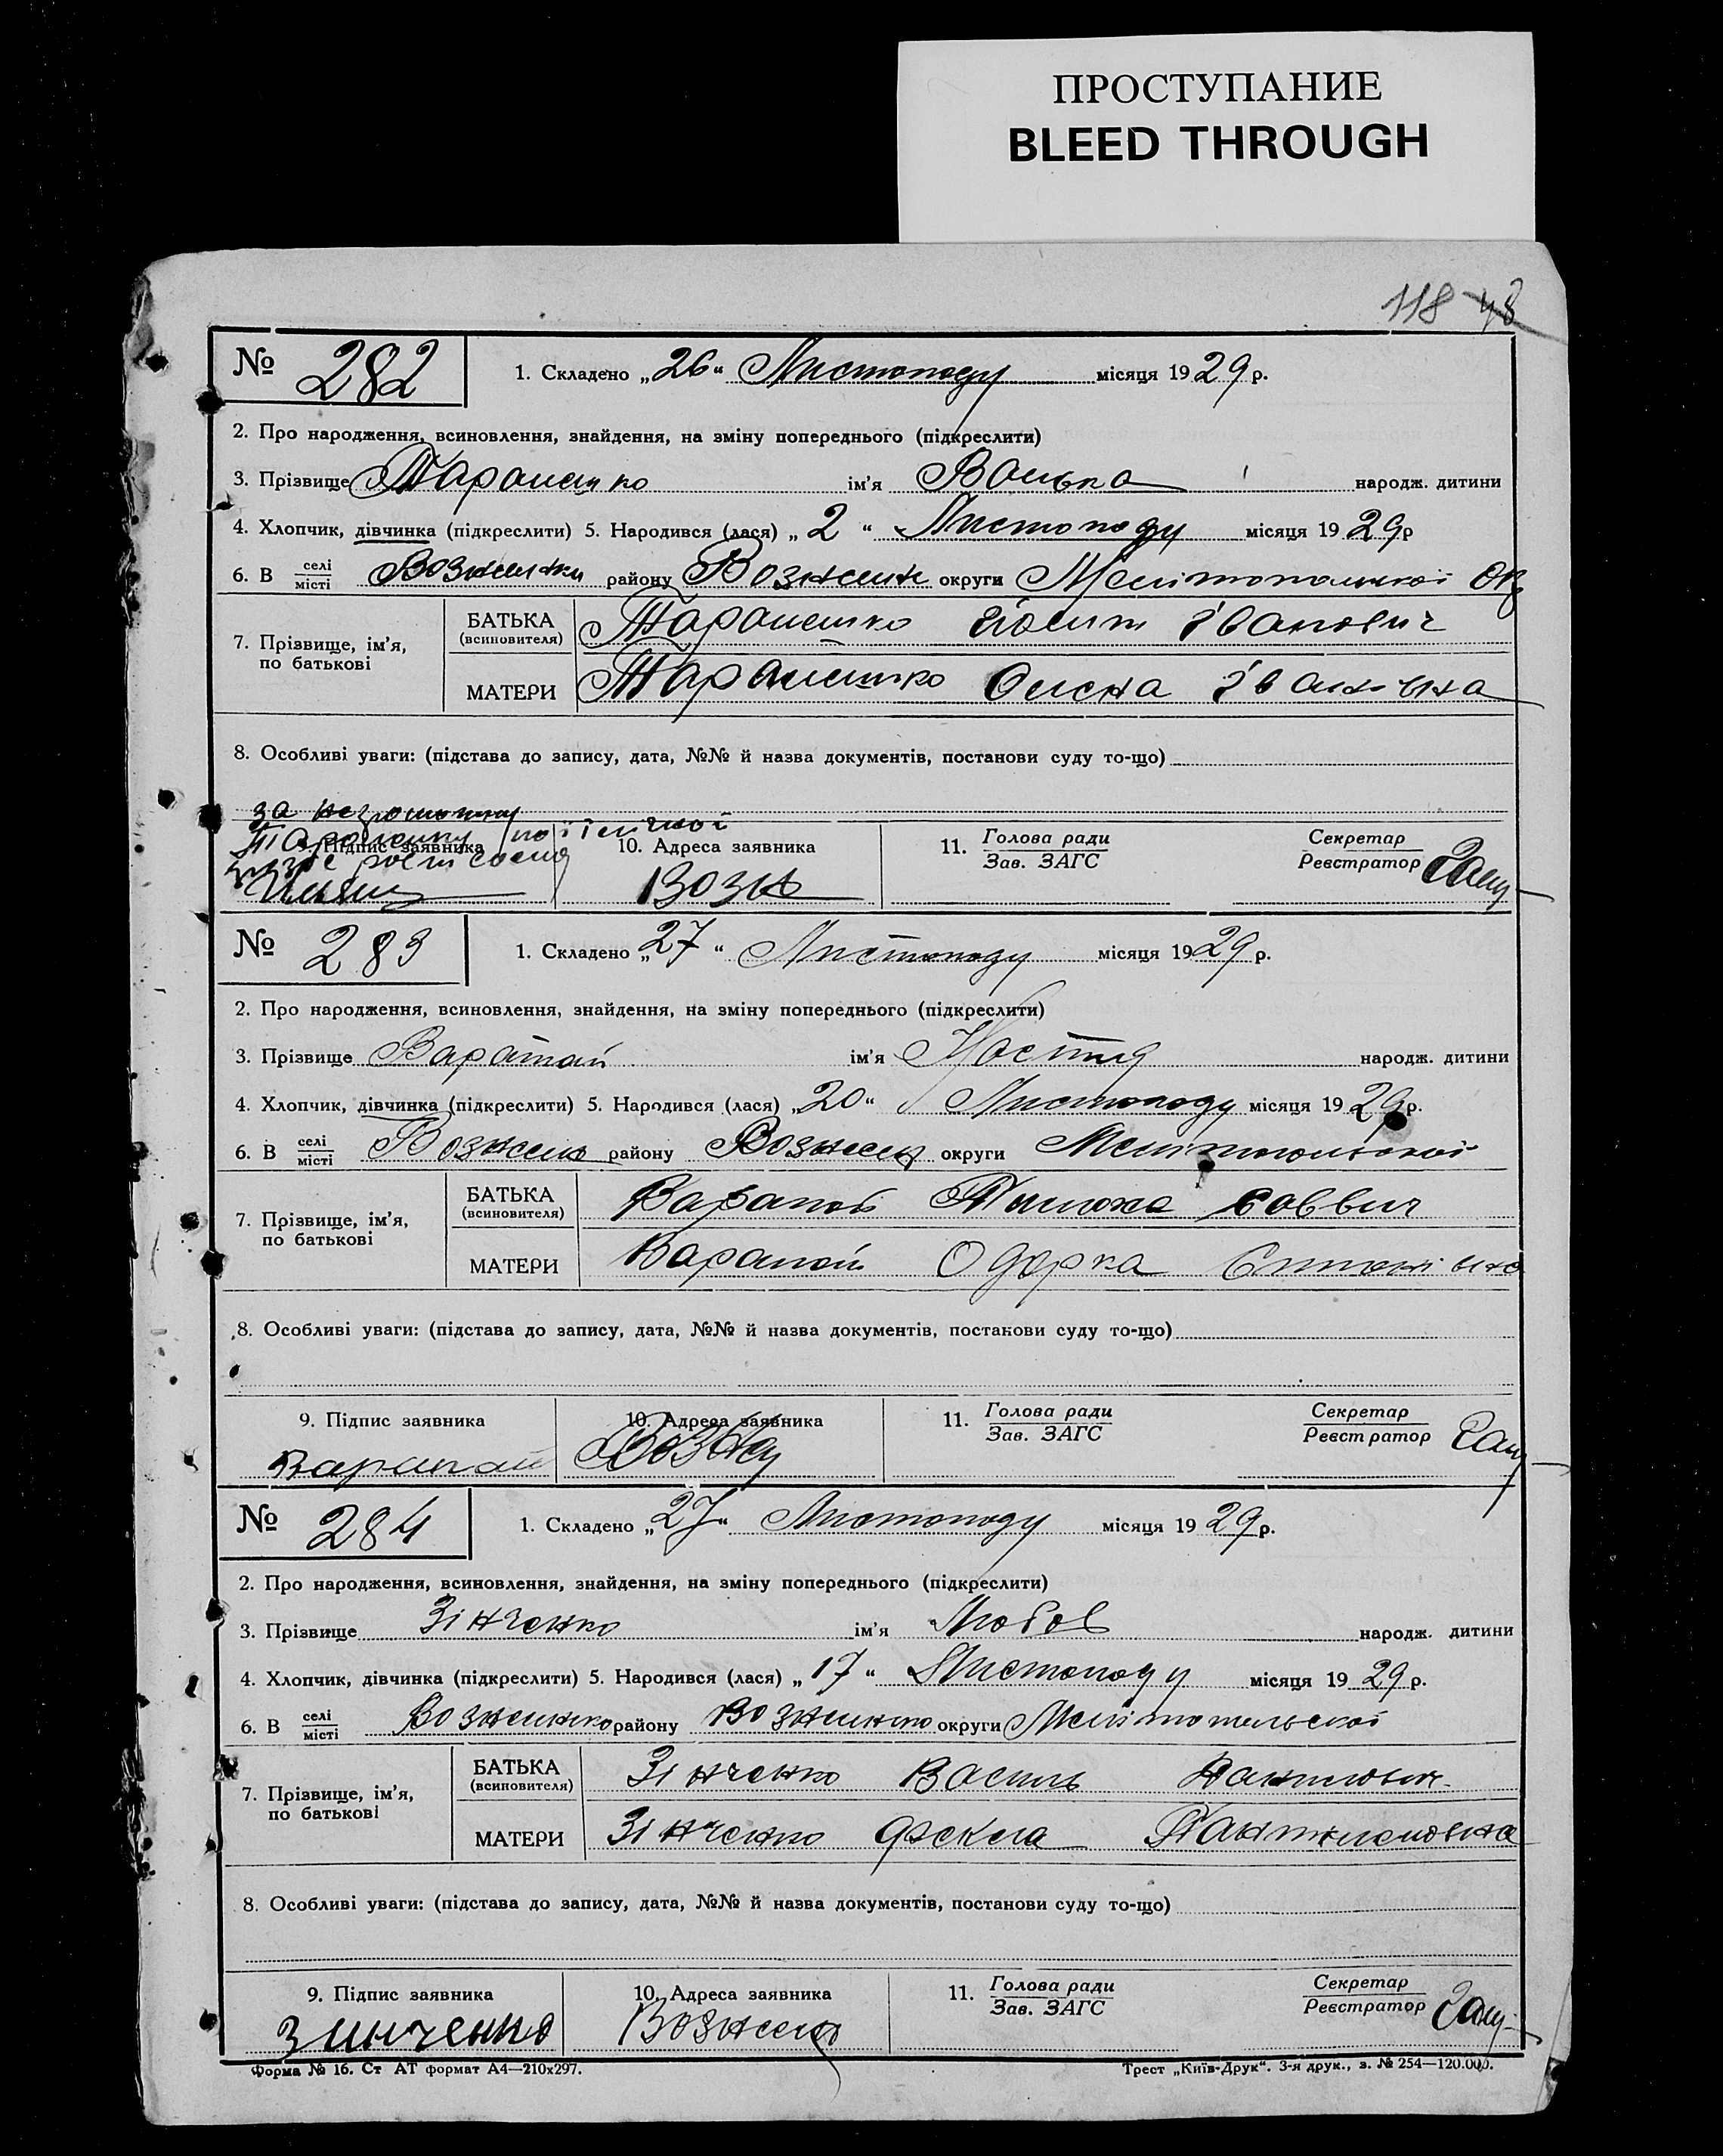 ПРОСТУПАНИЕ
BLEED THROUGH
118 48
№ 282 1. Складено „26“ Листопаду місяця 1929 р.
2. Про народження, всиновлення, знайдення, на зміну попереднього (підкреслити)
3. Прізвище Тараненко ім'я Ванька народж. дитини
4. Хлопчик, дівчинка (підкреслити) 5. Народився (лася) „2“ Листопаду місяця 1929 р
6. В селі/місті Вознесенки району Вознесен округи Мелітопольської Окр
7. Прізвище, ім'я, по батькові
БАТЬКА (всиновителя) Тараненко Йосип Іванович
МАТЕРИ Тараненко Олена Іванівна
8. Особливі уваги: (підстава до запису, дата, №№ й назва документів, постанови суду то-що)
за неграмотну
Тараненко
9. Підпис заявника 10. Адреса заявника 11. Голова ради/Зав. ЗАГС Секретар/Реєстратор
Возн
№ 283 1. Складено „27“ Листопаду місяця 1929 р.
2. Про народження, всиновлення, знайдення, на зміну попереднього (підкреслити)
3. Прізвище Варапай ім'я Настя народж. дитини
4. Хлопчик, дівчинка (підкреслити) 5. Народився (лася) „20“ Листопаду місяця 1929 р.
6. В селі/місті Вознесен району Вознесен округи Мелітопольської
7. Прізвище, ім'я, по батькові
БАТЬКА (всиновителя) Варапай Саввич
МАТЕРИ Варапай Одарка
8. Особливі уваги: (підстава до запису, дата, №№ й назва документів, постанови суду то-що)
9. Підпис заявника 10. Адреса заявника 11. Голова ради/Зав. ЗАГС Секретар/Реєстратор
Варапай Возн
№ 284 1. Складено „27“ Листопаду місяця 1929 р.
2. Про народження, всиновлення, знайдення, на зміну попереднього (підкреслити)
3. Прізвище Зінченко ім'я Любов народж. дитини
4. Хлопчик, дівчинка (підкреслити) 5. Народився (лася) „17“ Листопаду місяця 1929 р.
6. В селі/місті Вознесенко району Вознесенко округи Мелітопольської
7. Прізвище, ім'я, по батькові
БАТЬКА (всиновителя) Зінченко Василь Данилович
МАТЕРИ Зінченко Фекла
8. Особливі уваги: (підстава до запису, дата, №№ й назва документів, постанови суду то-що)
9. Підпис заявника 10. Адреса заявника 11. Голова ради/Зав. ЗАГС Секретар/Реєстратор
Зинченко Вознесен
Форма № 16. Ст АТ формат А4—210х297. Трест „Київ-Друк“. 3-я друк., з. № 254—120.000.